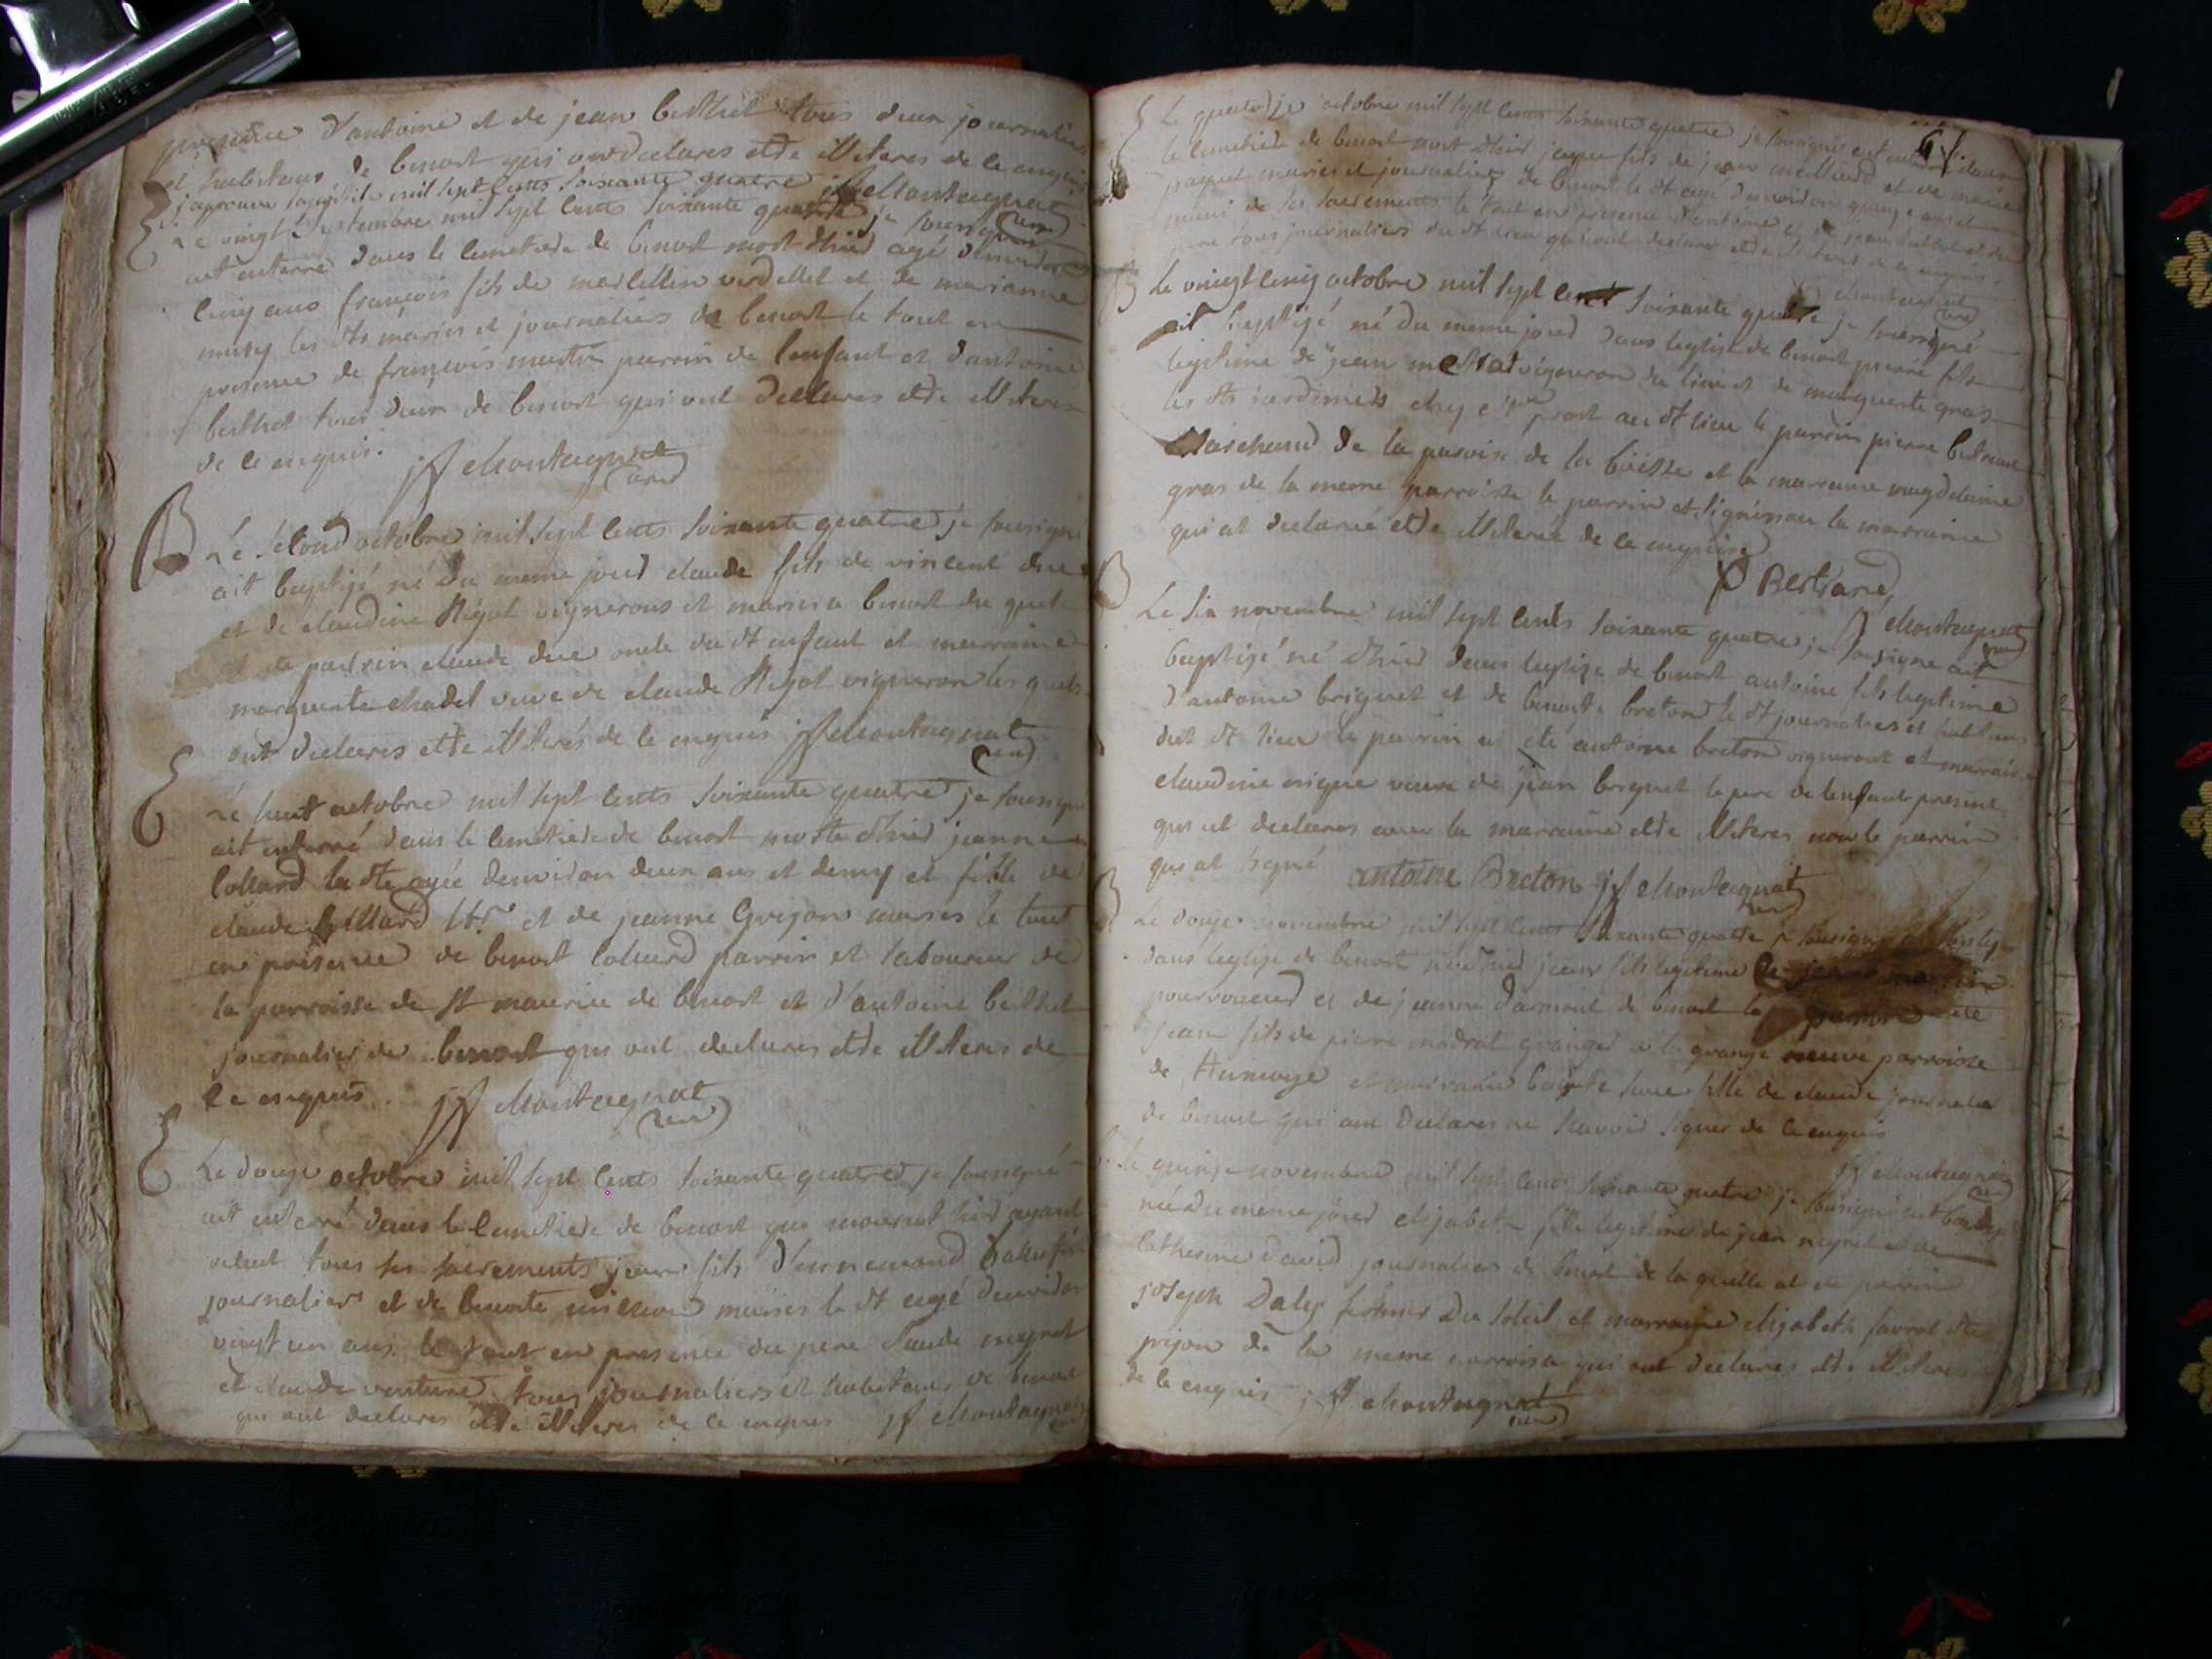 presence d'antoine et de jean berthet tous deux journaliers
et habitans de benost qui ont declares etre illiteres de ce enquis
j'approuve mil sept cents soixante quatre jf Montagnat
Le vingt septembre mil sept cents soixante quatre je soussigné curé
ait enterré dans le cemetiere de benost mort d'hier agé d'environ
cinq ans françois fils de marcellin verdellet et de marianne
musy les dts mariés et journaliers de benost le tout en
presence de françois parrain de l'enfant et d'antoine
berthet tous deux de benost qui ont declares etre illiteres
de ce enquis. jf Montagnat
curé
B Le second octobre mil sept cents soixante quatre je soussigné
ait baptizé né du meme jour claude fils de vincent duc
et de claudine Rigot vignerons et mariés a benost du quel
at ete parrein claude duc oncle du dt enfant et marraine
marguerite chadel veuve de claude Rigot vigneron les quels
ont declares etre illiterés de ce enquis jf Montagnat
curé
Le huit octobre mil sept cents soixante quatre je soussigné
ait enterré dans le cemetiere de benost morte d'hier jeanne
collard la dte agée denviron deux ans et demy et fille de
claude collard lbr et de jeanne Grigon mariés le tout
en présence de benoit collard parrin et laboureur de
la parroisse de st maurice de benost et d'antoine berthet
journalier de benost qui ont declares etre illiteres de
ce enquis. jf Montagnat
curé
Le douze octobre mil sept cents soixante quatre je soussigné
ait enterré dans le cemetiere de benost qui mourut hier ayant
receut tous ses sacrements jean fils d'ennemond
journalier et de benoite mariés le dt agé denviron
vingt un ans le tout en presence du pere claude meynet
et claude venture tous journaliers et habitans de benost
qui ont declares etre illiteres de ce enquis jf Montagnat
curé
61.
Le quatorze octobre mil sept cents soixante quatre je soussigné ait enterré dans
le cemetiere de benost mort d'hier fils de jean et de marie
paquet mariés et journaliers de benost le dt agé denviron quinze ans et
muni de ses sacrements le tout en presence d'antoine et de jean berthet et du
pere tous journaliers du dt lieu qui ont declare etre illiteres de ce enquis
jf Montagnat
curé
Le vingt cinq octobre mil sept cents soixante quatre je soussigné
ait baptizé né du meme jour dans leglize de benost pierre fils
legitime de jean mestrat vigneron du lieu et de marguerite gras
les dts chez prost au dt lieu le parrin pierre bertrand
Marchand de la paroisse de la boisse et la marraine magdelaine
gras de la meme parroisse le parrin et signé non la marraine
qui at declarée etre illiterée de ce enquise
P Bertrand
jf Montagnat
curé
Le six novembre mil sept cents soixante quatre je soussigné ait
baptizé né d'hier dans leglize de benost antoine fils legitime
d'antoine briquet et de benoite breton le dt journalier et habitans
dud dt lieu le parrin a eté antoine breton vigneront et marraine
claudine veuve de jean briquet le pere de lenfant present
qui at declares avec la marraine etre illiteres non le parrin
qui at signé antoine Breton jf Montagnat
curé
Le douze novembre mil sept cents soixante quatre je soussigné ait baptizé
dans leglize de benost né d'hier jean fils legitime de
pourvoieur et de jeanne darmont de benost le parrin a eté
jean fils de pierre madrat granger a la grange neuve parroisse
de et marraine benoite fille de claude journalier
de benost qui ont declares ne scavoir signer de ce enquis
jf Montagnat
curé
Le quinze novembre mil sept cents soixante quatre je soussigné ait baptizé
née du meme jour elizabeth fille legitime de jean neyret et de
catherine david journalier de benost de la quelle at ete parrin
joseph Daly fermier du soleil et marraine elizabeth favrot dte
prijon de la meme parroisse qui ont declares etre illiteres
de ce enquis jf Montagnat
curé